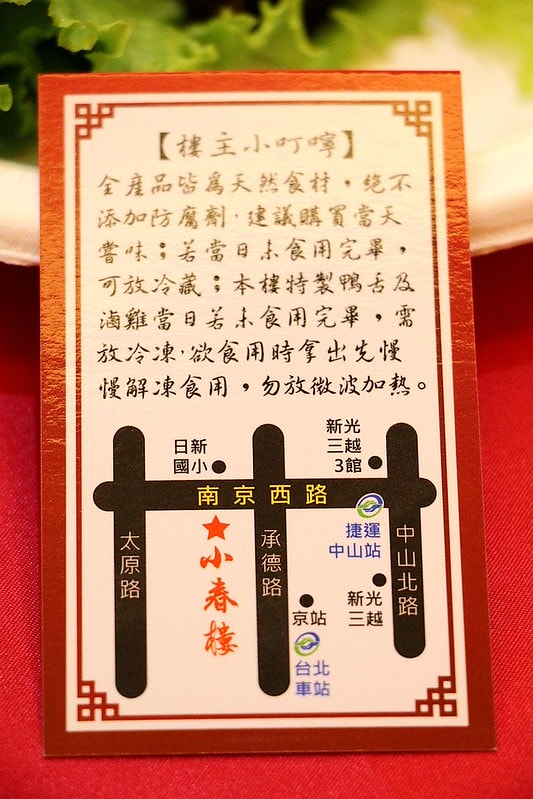 【樓主小叮嚀】
全產品皆為天然食材，絕不
添加防腐劑．建議購買當天
嘗味；若當日未食用完畢，
可放冷藏；本樓特製鴨舌及
滷雞當日若未食用完畢，需
放冷凍．欲食用時拿出先慢
慢解凍食用，勿放微波加熱。
新光
三越
3館
日新
國小
南京西路
捷運
中山站
太原路
小春樓
承德路
中山北路
新光
三越
京站
台北
車站